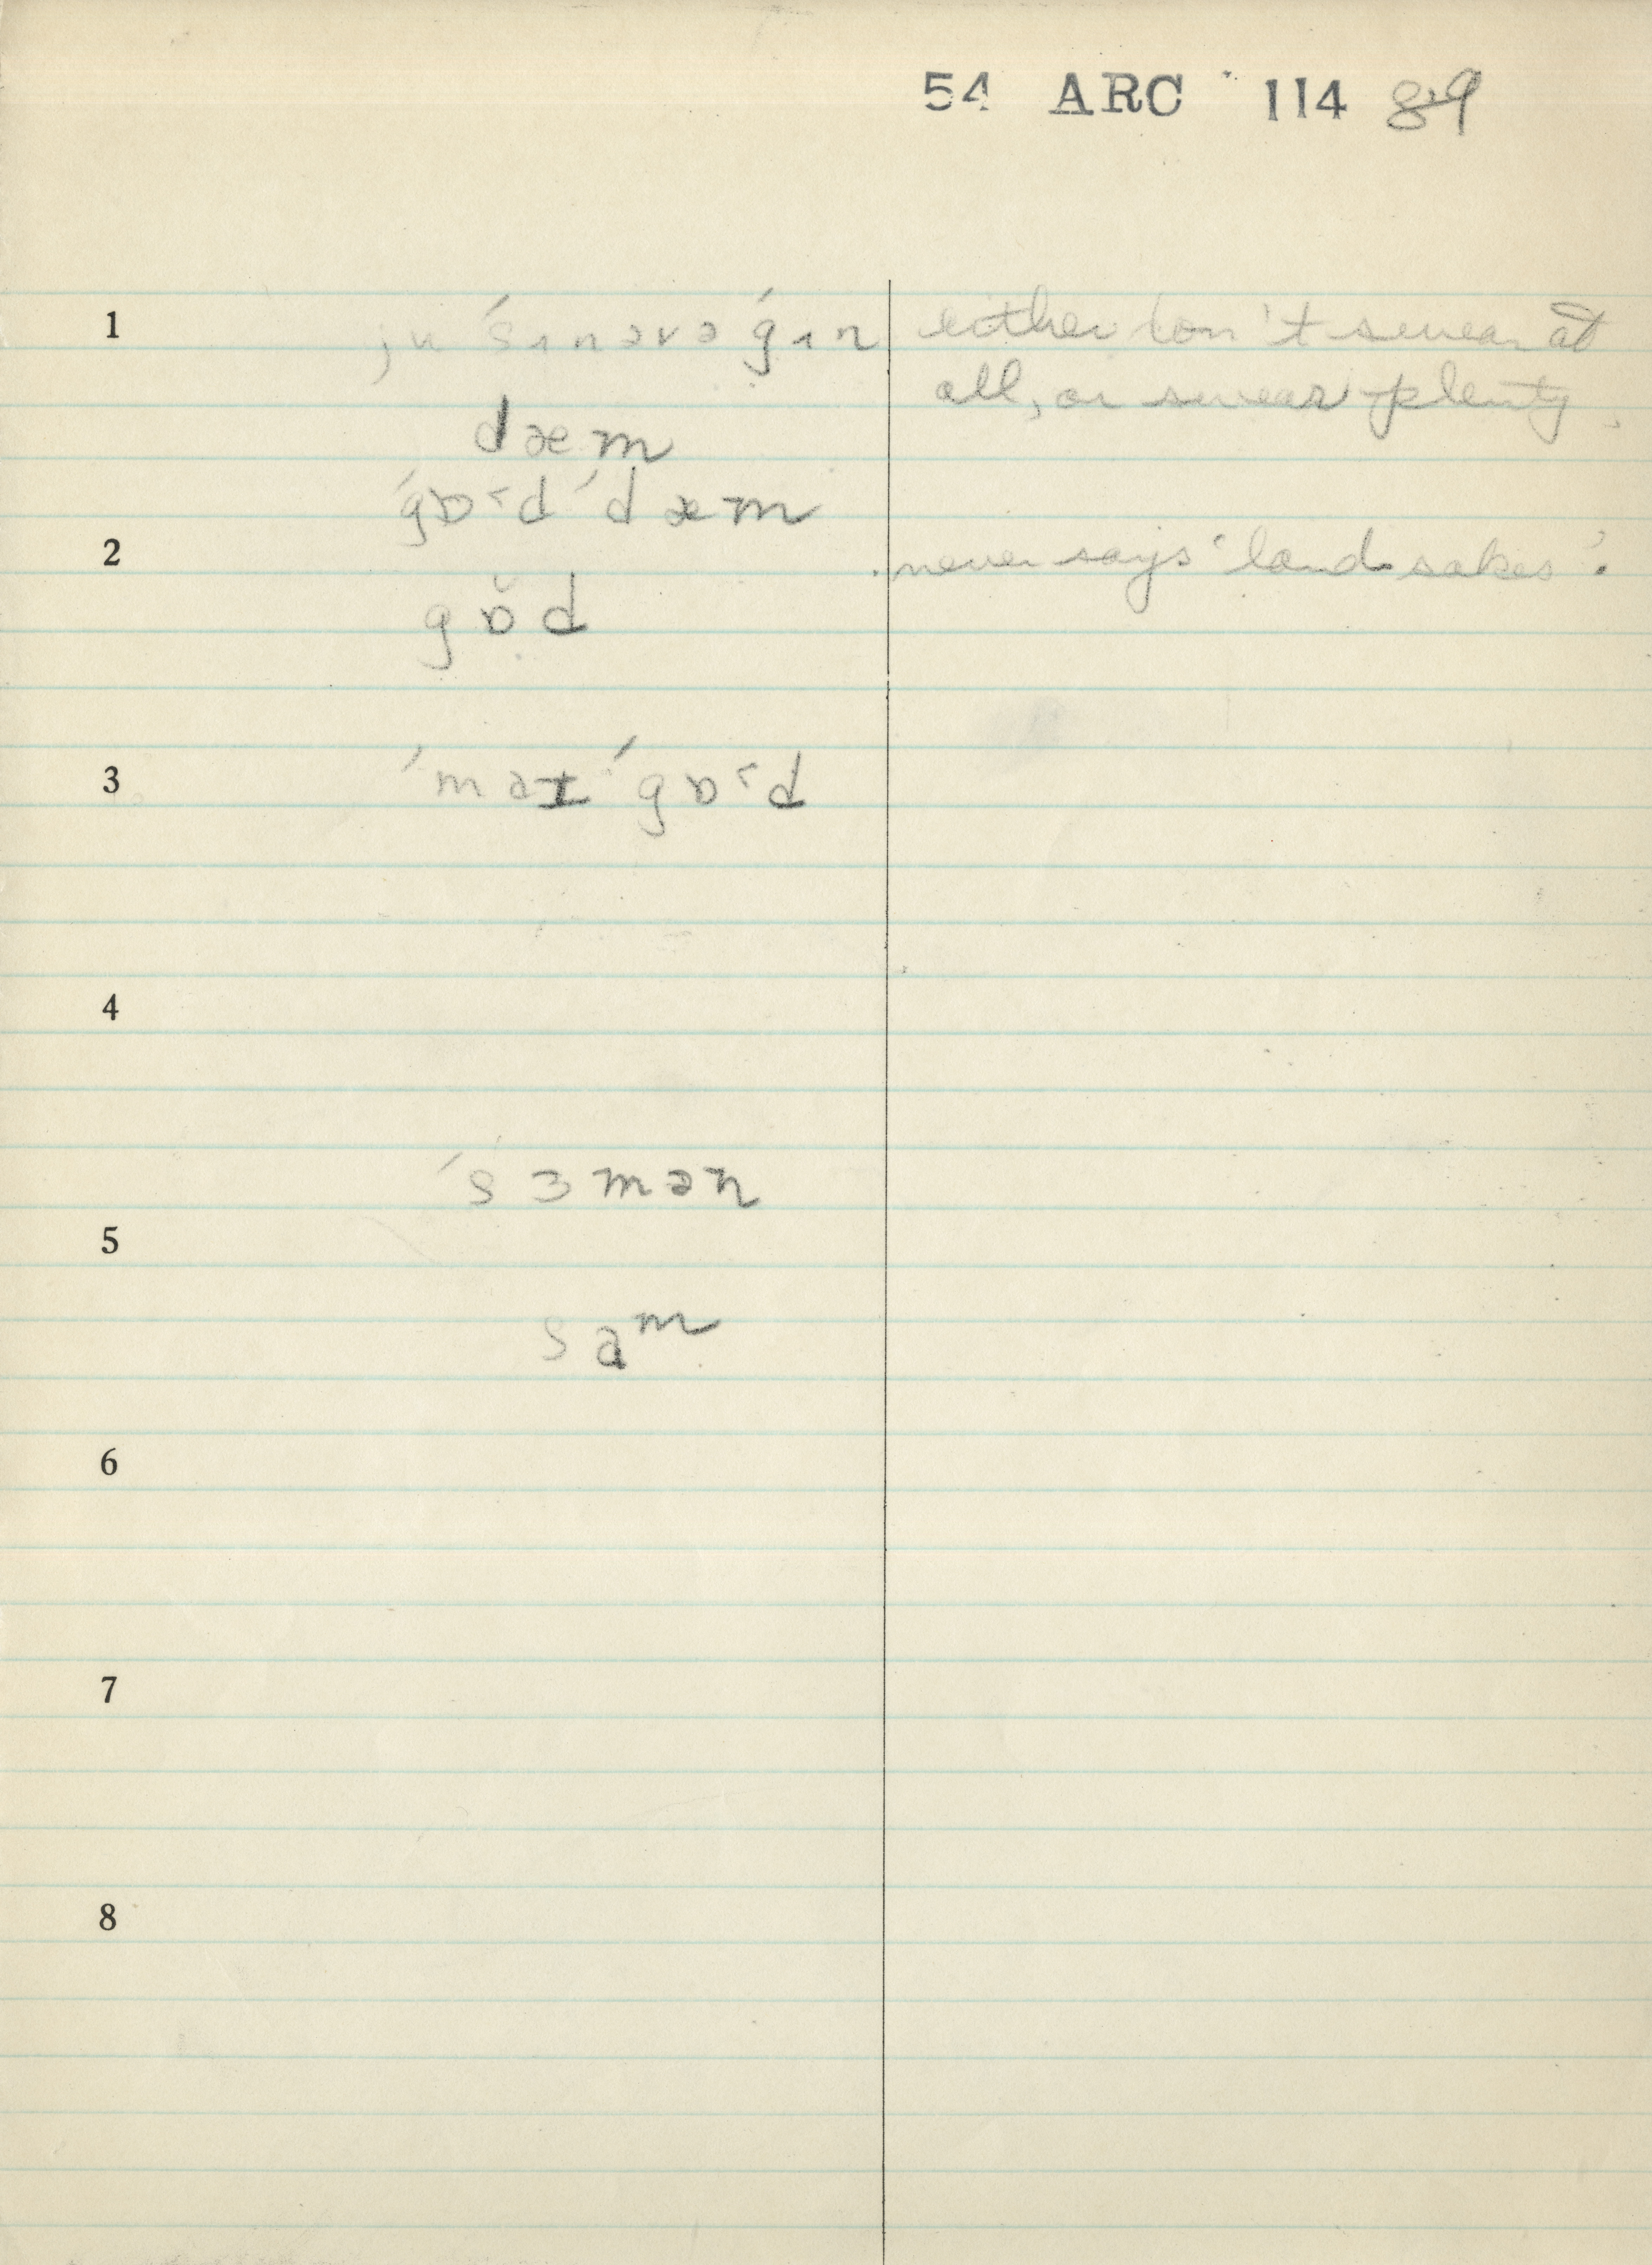 54 ARC 114 89
1 ju ´sɪnəvə´gɪn either don't swear at
all, or swear plenty.
dæm
´gɒ˂d ´dæm
2 never says 'land sakes'.
gɒ̆d
3 ´maɪ ´gɒ˂d
4
´sɜmən
5
sɑᵐ
6
7
8